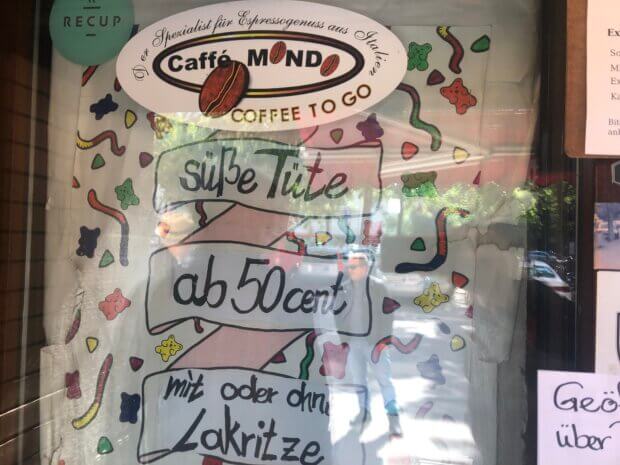 RECUP
Der Spezialist für Espressogenuss aus Italien
Caffé MONDO
COFFEE TO GO
süße Tüte
ab 50 cent
mit oder ohne
Lakritze
Ex
So
Ex
Ka
Bit
Geö
über